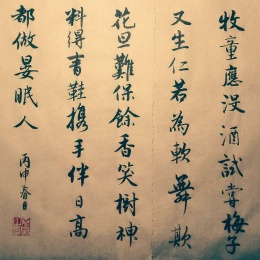 牧童應没酒試嘗梅子
又生仁若為軟舞欺
花旦難保餘香笑樹神
料得青鞋携手伴日高
都做晏眠人
丙申春